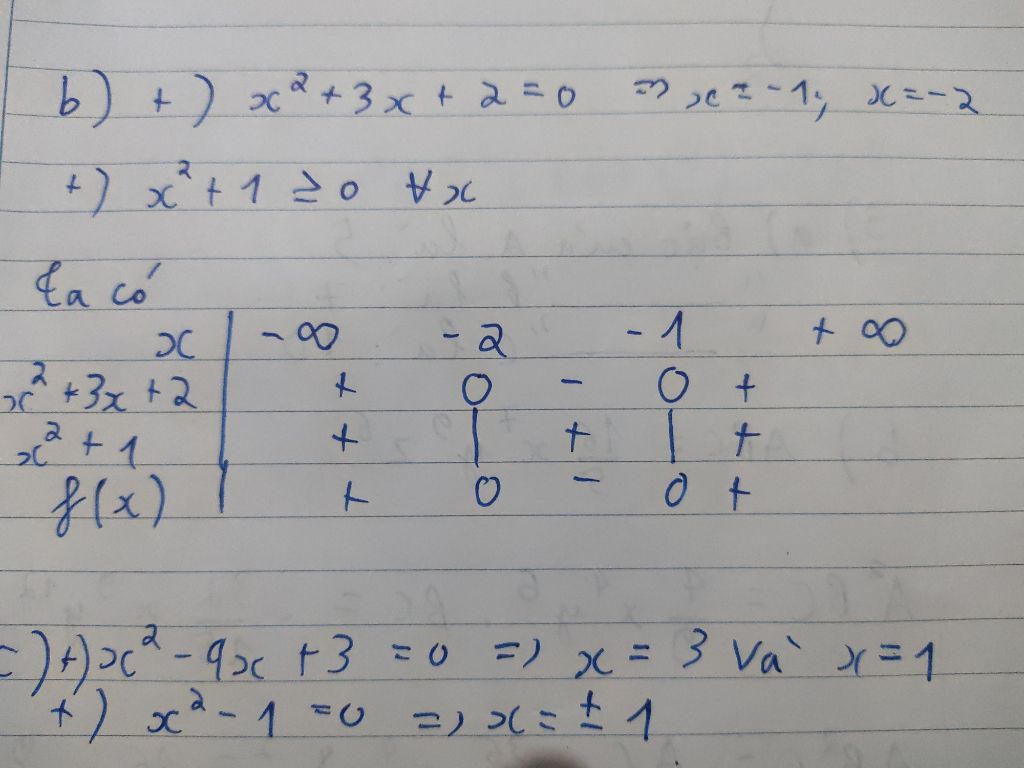 b) +) x² + 3x + 2 = 0 => x = -1; x = -2
+) x² + 1 ≥ 0 ∀x
ta có
x | -∞ -2 -1 +∞
x² + 3x + 2 | + 0 - 0 +
x² + 1 | + | + | +
f(x) | + 0 - 0 +
c) +) x² - 9x + 3 = 0 => x = 3 và x = 1
+) x² - 1 = 0 => x = ± 1